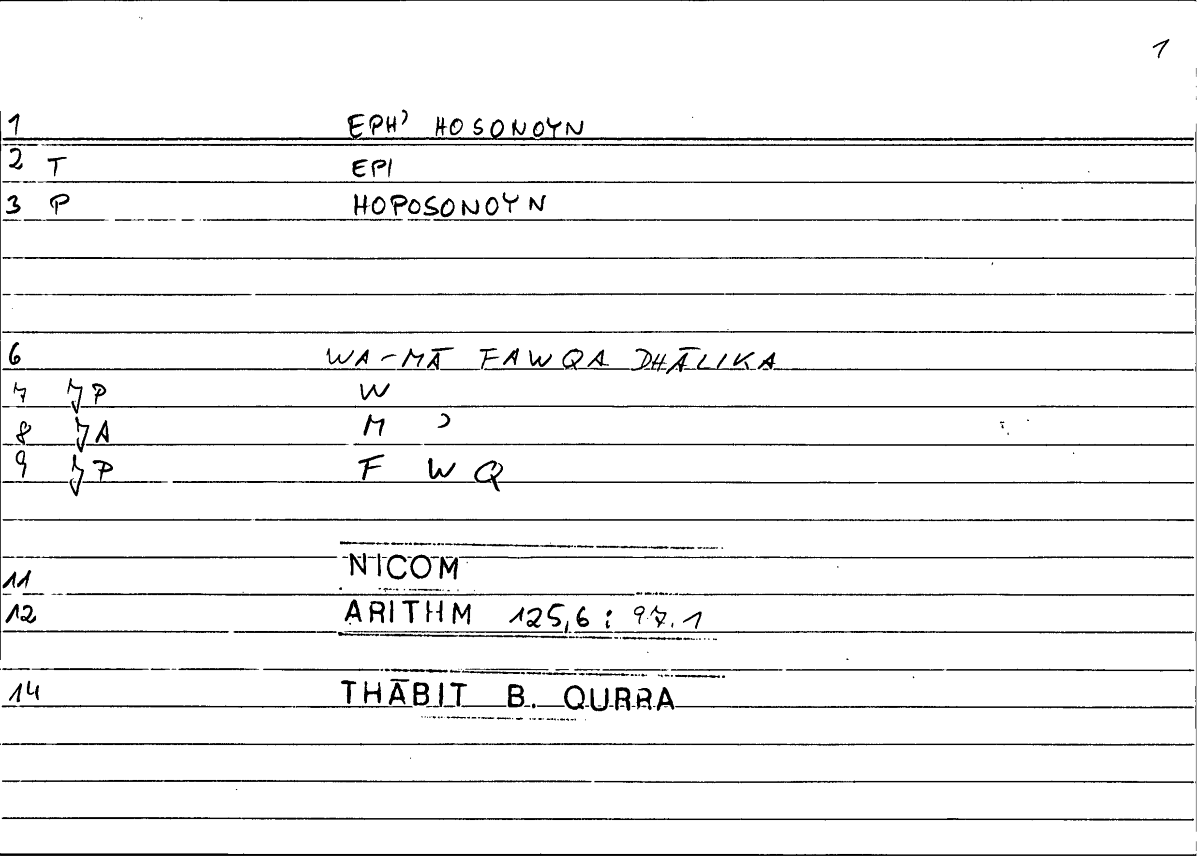 1
1 EPH’ HOSONOYN
2 T EPI
3 P HOPOSONOYN
6 WA-MĀ FAWQA DHĀLIKA
7 JP W
8 JA M ʾ
9 JP F W Q
11 NICOM
12 ARITHM 125,6 : 97.1
14 THĀBIT B. QURRA